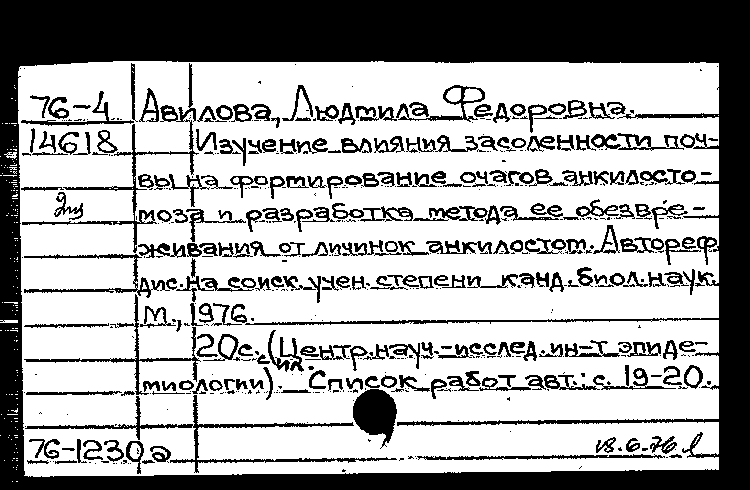 76-4 Авилова, Людмила Федоровна.
14618 Изучение влияния засоленности поч-
вы на формирование очагов анкилосто-
моза и разработка метода ее обезвре-
живания от личинок анкилостом. Автореф
дис. на соиск. учен. степени канд. биол. наук.
М., 1976.
20с. с ил. (Центр. науч.-исслед. ин-т эпиде-
миологии). Список работ авт.: с. 19-20.
76-1230а 18.6.76